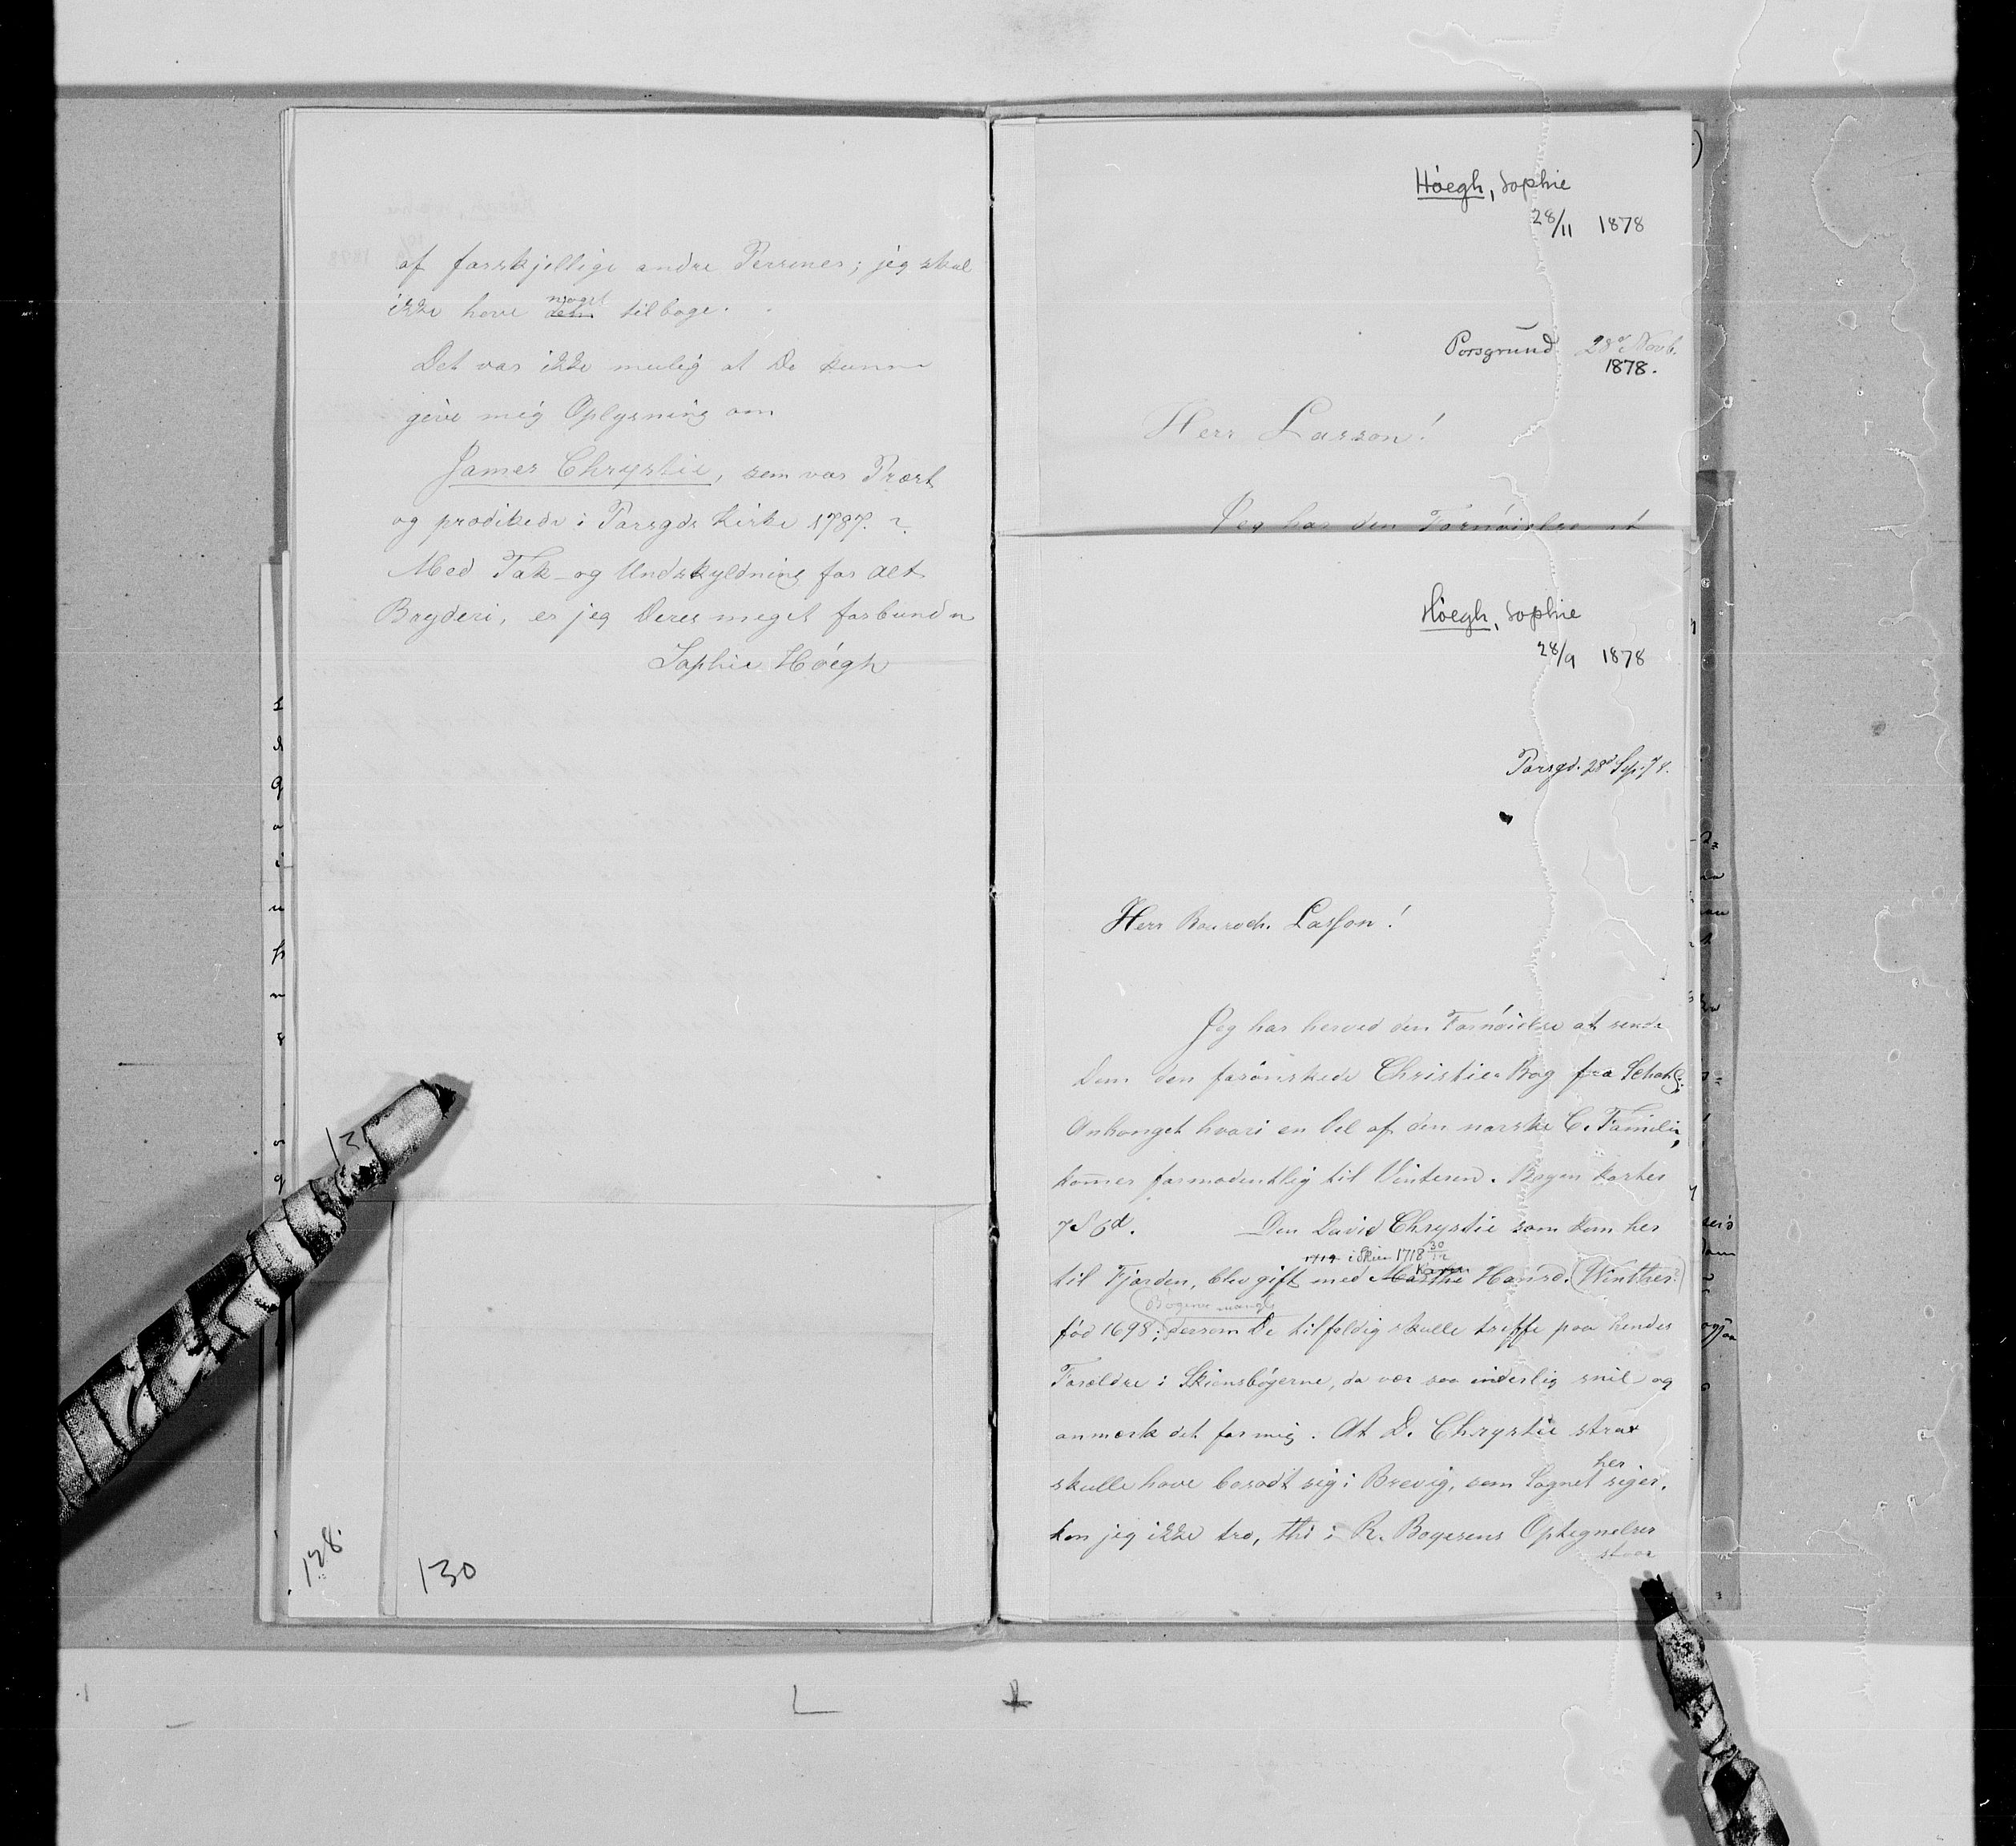 af forskjellige andre Personer; jeg skal
ikke have noget den tilbage.
Det var ikke mulig at De kunne
give mig Oplysning om
James Chrystie, som var Præst
og prædikede i Porsgds Kirke 1787.?
Med Tak og Undskyldning for alt
Bryderi, er jeg Deres meget forbundn
Sophie Höegh
128.
130
Höegh, Sophie
28/11 1878
Porsgrund 28de Novb.
1878.
Herr Lasson!
Jeg har den Fornöielse at
Höegh, Sophie
28/9 1878
Porsgd. 28d Sep. 78.
Herr Lasson!
Jeg har herved den Fornöielse at sende
Dem den forönskede Christie Bog fra
Anhanget hvori en Del af den norske C. Familie,
kommer formodentlig til Vinteren. Bogen koster
7 S 6d. Den David Chrystie som kom her
1719 i Skien 1718 30/12
til Fjorden, blev gift med Marthe Karen Hansd. (Winther?)
(Bøgerne mangle
fød 1698; dersom De tilfældig skulle træffe paa hendes
Forældre i Skiensbøgerne, da vær saa inderlig snil og
anmærk det for mig. At D. Chrystie strax
skulle have bosadt sig i Brevig, som Sagnet her siger,
kan jeg ikke tro, thi i R. Boyesens Optegnelser
staar